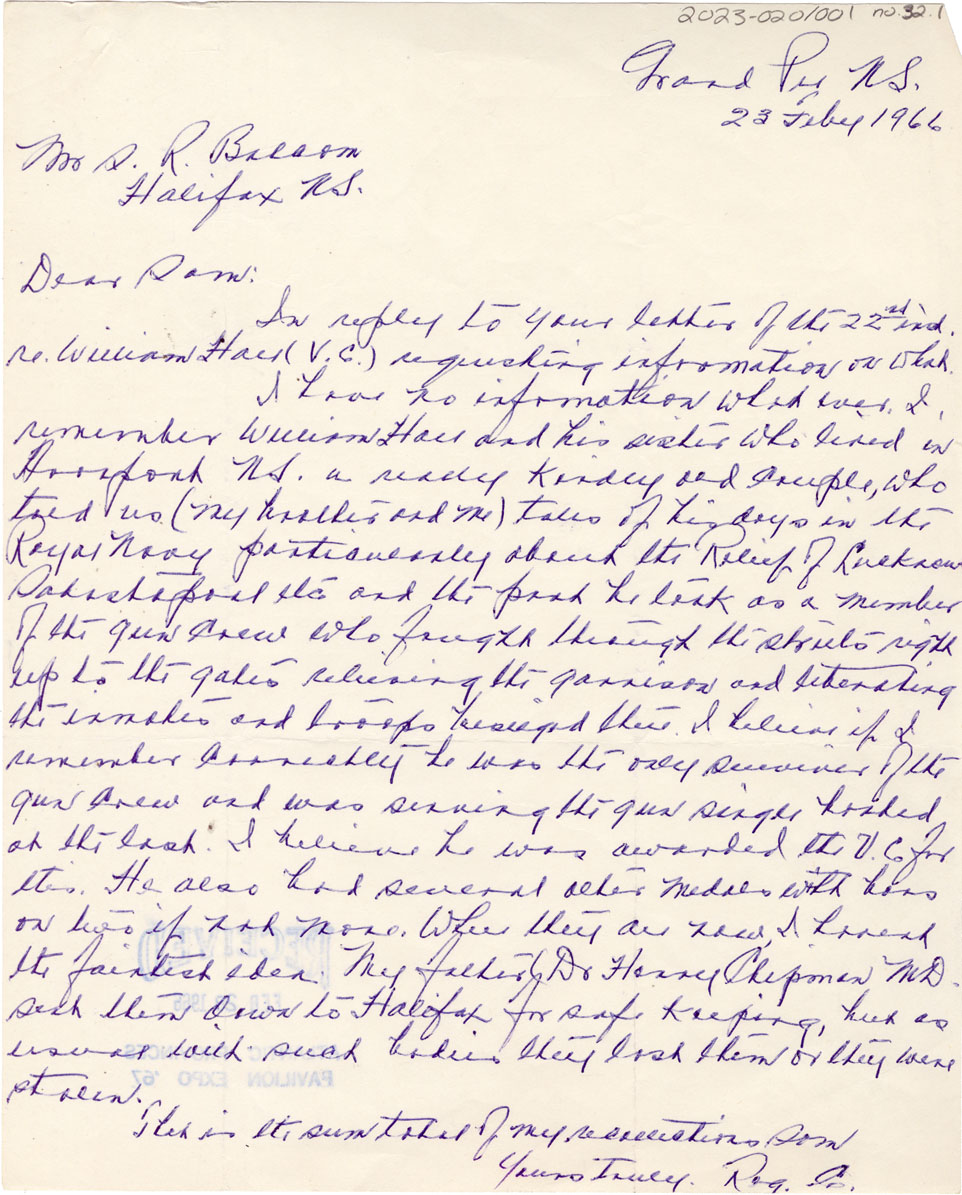 2023-020/001 no. 32.1
Grand Pre N.S.
23 Feby 1966
Mr S. R. Balcom
Halifax N.S.
Dear Sam:
In reply to your letter of the 22nd ind.
re. William Hall (V.C.) requesting information on what.
I have no information what ever. I
remember William Hall and his sister who lived in
N.S. a really kindly old couple, who
told us (my brother and me) tales of his days in the
Royal Navy particularly about the Relief of Lucknow
Sabastapool etc and the part he took as a member
of the gun crew who fought through the streets right
up to the gates relieving the garrison and liberating
the inmates and troops besieged there. I believe if I
remember correctly he was the only surviver of the
gun crew and was serving the gun single handed
at the last. I believe he was awarded the V.C. for
this. He also had several other medals with bars
on two if not more. Where they are now, I havent
the faintest idea. My father, Dr Henry Chipman MD.
sent them down to Halifax for safe keeping, but as
usual with such bodies they lost them or they were
stolen.
This is the sum total of my recollections Sam
Yours truly. Reg. C.
RECEIVED
FEB 28 1966
ATLANTIC PROVINCES
PAVILION EXPO '67